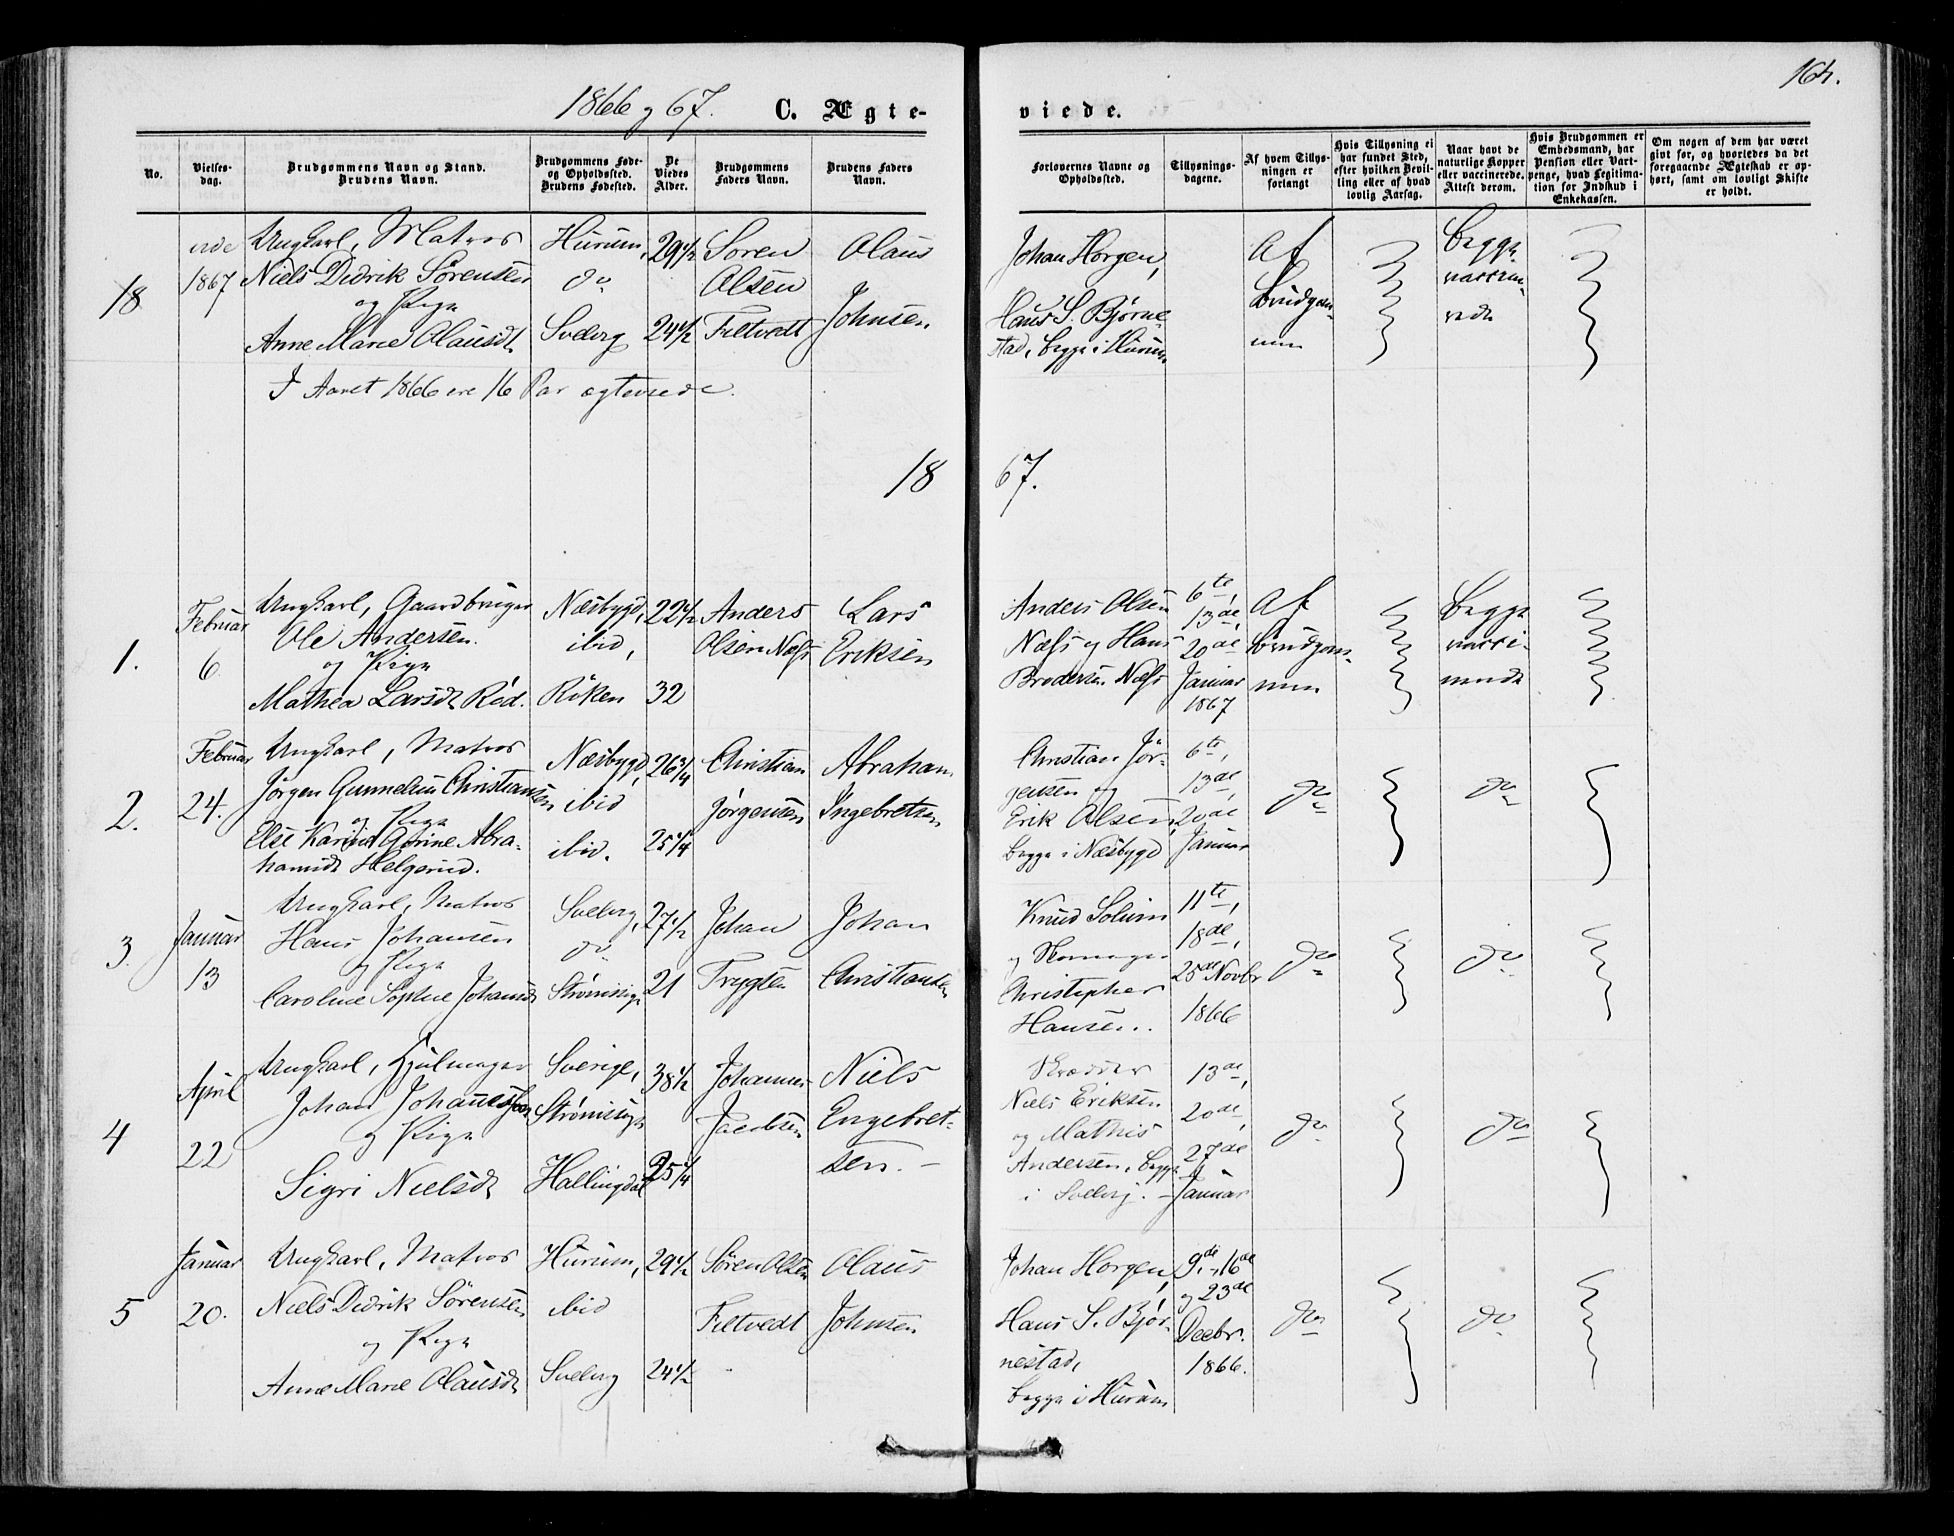 1866 og 67. C. Ægte-
viede. 164.
No.
Vielses-
dag.
Brudgommens Navn og Stand.
Brudens Navn.
Brudgommens Føde-
og Opholdssted.
Brudens Fødested.
De
Viedes
Alder.
Brudgommens
Faders Navn.
Brudens Faders
Navn.
Forlovernes Navne og
Opholdssted.
Tillysnings-
dagene.
Af hvem Tillys-
ningen er
forlangt
Hvis Tillysning ei
har fundet Sted,
efter hvilken Bevil-
ling eller af hvad
lovlig Aarsag.
Naar havt de
naturlige Kopper
eller vaccinerede.
Attest derom.
Hvis Brudgommen er
Embedsmand, har
Pension eller Vart-
penge, hvad Legitima-
tion for Indskud i
Enkekassen.
Om nogen af dem har været
gift før, og hvorledes da det
foregaaende Ægteskab er op-
hørt, samt om lovligt Skifte
er holdt.
18
1867
Ungkarl, Matros
Niels Didrik Sørensen
og Pige
Anne Marie Olausdt
Hurum,
do
Svelvig
29 1/2
24 1/2
Søren
Olsen
Filtvedt
Olaus
Johnsen
Johan Horgen,
Hans S. Bjørne-
stad, begge i Hurum
Af
Brudgom-
men
Begge
vaccine-
rede
I Aaret 1866 ere 16 Par ægteviede.
18 67.
1.
Februar
6
Ungkarl, Gaardbruger
Ole Andersen.
og Pige
Mathea Larsdt Rød.
Næsbygd,
ibid,
Røken
22 1/2
32
Anders
Olsen Næss
Lars
Eriksen
Anders Olsen
Næss og Hans
Brodersen Næss
6te,
13de,
20de
Januar
1867
Af
Brudgom-
men
Begge
vacci-
nerede
2.
Februar
24.
Ungkarl, Matros
Jørgen Gunnelius Christiansen
og Pige
Else Karine Gorine Abra-
hamsdt Helgerud.
Næsbygd,
ibid
ibid.
26 3/4
25 1/4
Christian
Jørgensen
Abraham
Ingebretsen
Christian Jør-
gensen og
Erik Olsen,
begge i Næsbygd
6te,
13de,
20de
Januar
do
do
3.
Januar
13
Ungkarl, Matros
Hans Johansen
og Pige
Caroline Sophie Johansdt
Svelvig,
do
Strømsvig
27 1/2
21
Johan
Trygsen
Johan
Christiansen
Knud Solum
og Skomager
Christopher
Hansen.
11te,
18de,
25de Novbr
1866
do
do
4
April
22
Ungkarl, Hjulmager
Johan Johannesson
og Pige
Sigri Nielsdt
Sverige,
Strømsvig
Hallingdal
38 1/2
25 1/4
Johannes
Jacobsen
Niels
Engebret-
sen. -
Skrædder
Niels Eriksen
og Mathis
Andersen, begge
i Svelvig. -
13de,
20de,
27de
Januar
do
do
5
Januar
20.
Ungkarl, Matros
Niels Didrik Sørensen
og Pige
Anne Marie Olausdt
Hurum,
ibid
Svelvig
29 1/2
24 1/2
Søren Olsen
Filtvedt
Olaus
Johnsen
Johan Horgen,
Hans S. Bjør-
nestad,
begge i Hurum
9de, 16de
og 23de
Decbr.
1866.
do
do